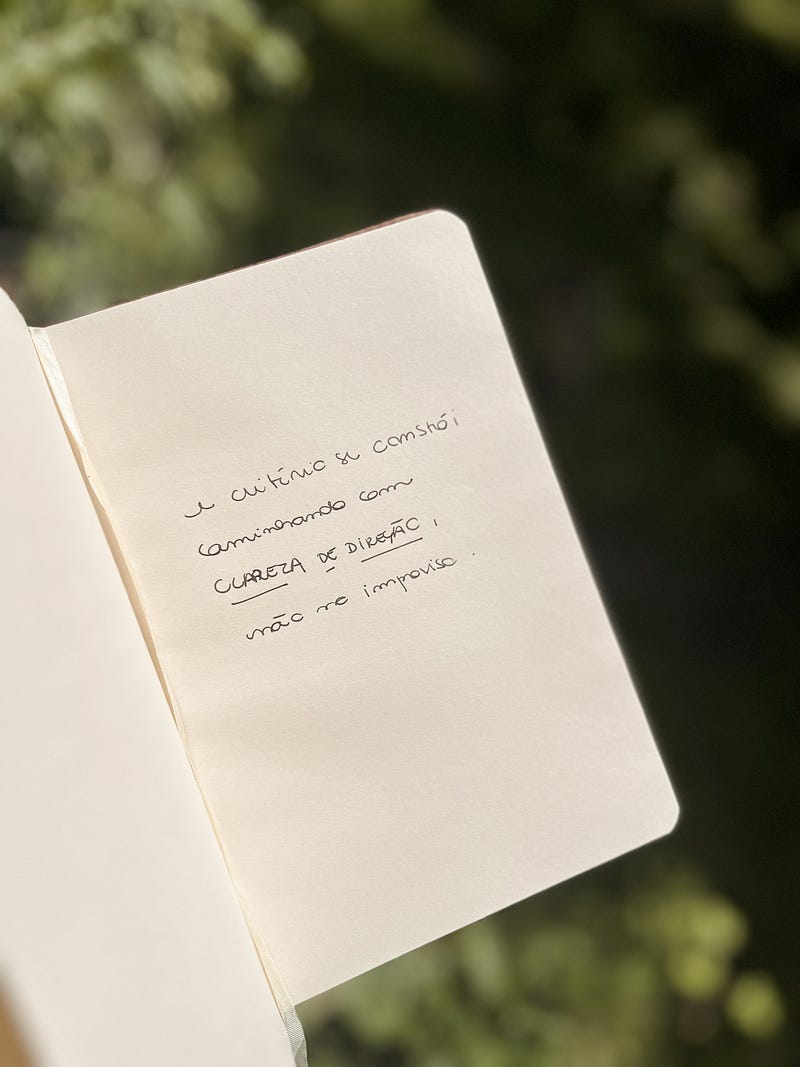 e critério se constrói
caminhando com
CLAREZA DE DIREÇÃO,
não no improviso.